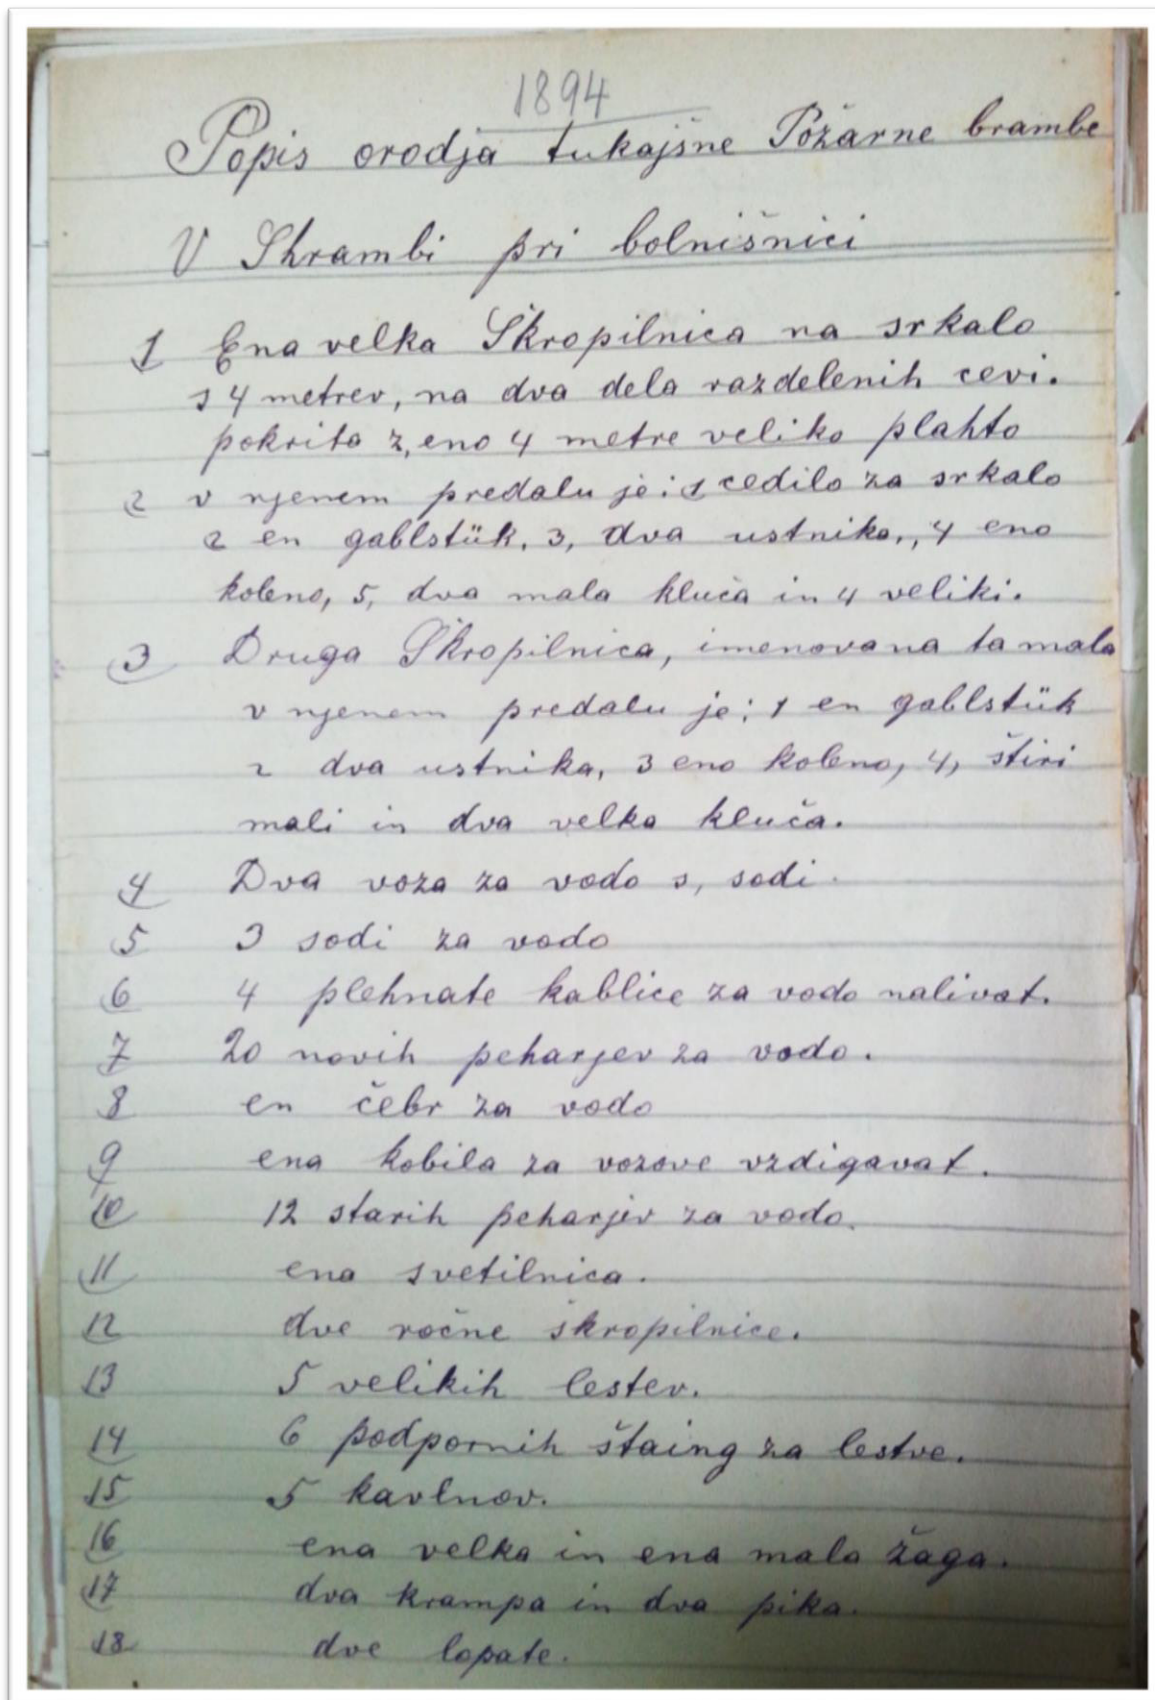 1894
Popis orodja tukajšne Požarne brambe
V Shrambi pri bolnišnici
1 Ena velka Škropilnica na srkalo
s 4 metrev, na dva dela razdelenih cevi.
pokrita z, eno 4 metre veliko plahto
2 v njenem predalu je: 1 cedilo za srkalo
2 en gablstük, 3, dva ustnika,, 4 eno
koleno, 5, dva mala kluča in 4 veliki.
3 Druga Škropilnica, imenovana ta mala
v njenem predalu je; 1 en gablstük
2 dva ustnika, 3 eno koleno, 4, štiri
mali in dva velka kluča.
4 Dva voza za vodo s, sodi.
5 3 sodi za vodo
6 4 plehnate kablice za vodo nalivat.
7 20 novih peharjev za vodo.
8 en čebr za vodo
9 ena kobila za vozove vzdigavat.
10 12 starih peharjev za vodo.
11 ena svetilnica.
12 dve ročne škropilnice.
13 5 velikih lestev.
14 6 podpornih štaing za lestve.
15 5 kavlnov.
16 ena velka in ena mala žaga.
17 dva krampa in dva pika.
18 dve lopate.